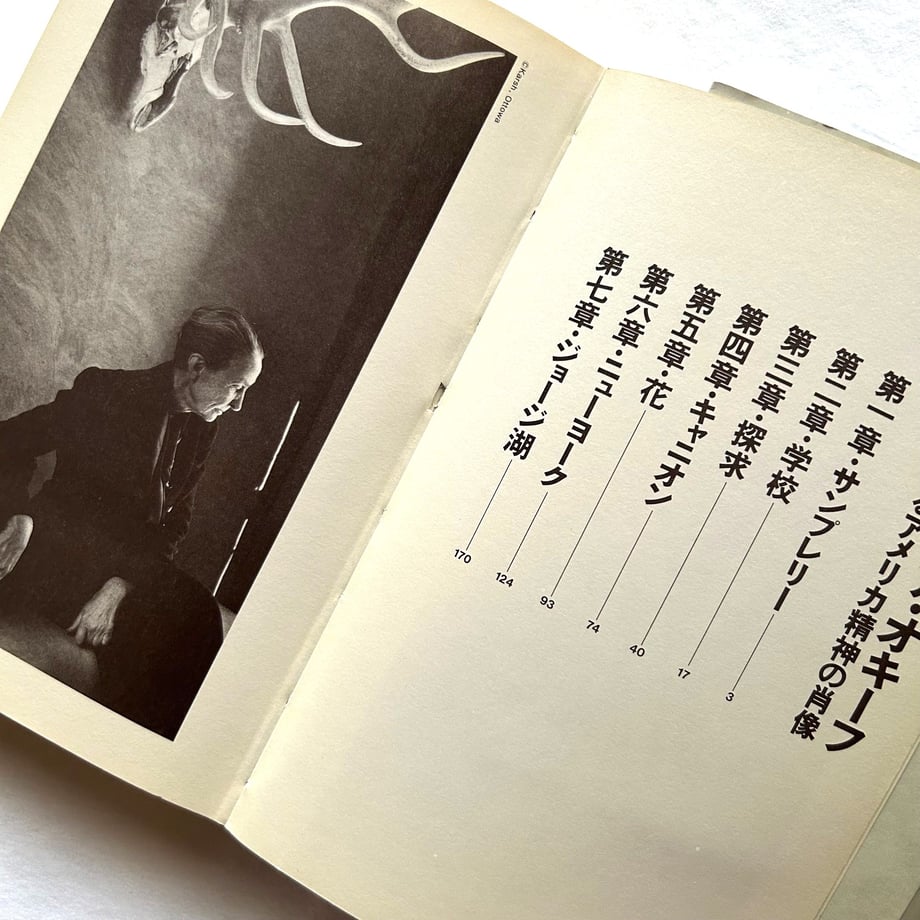 ©Karsh, Ottowa
オキーフ
アメリカ精神の肖像
第一章・サンプレリー 3
第二章・学校 17
第三章・探求 40
第四章・キャニオン 74
第五章・花 93
第六章・ニューヨーク 124
第七章・ジョージ湖 170